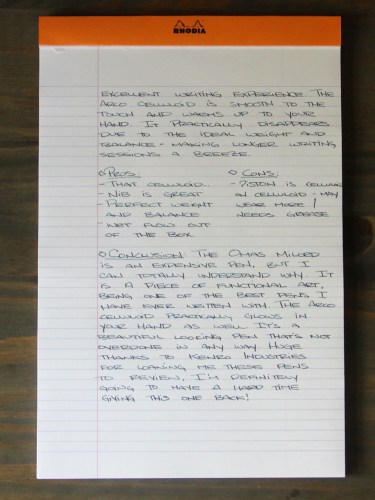 RHODIA
EXCELLENT WRITING EXPERIENCE. THE
ARCO CELLULOID IS SMOOTH TO THE
TOUCH AND WARMS UP TO YOUR
HAND. IT PRACTICALLY DISAPPEARS
DUE TO THE IDEAL WEIGHT AND
BALANCE - MAKING LONGER WRITING
SESSIONS A BREEZE.
PROS:
- THAT CELLULOID...
- NIB IS GREAT
- PERFECT WEIGHT
AND BALANCE
- WET FLOW OUT
OF THE BOX
CONS:
- PISTON IS CELLULOID
ON CELLULOID - MAY
WEAR MORE /
NEEDS GREASE
CONCLUSION: THE OMAS MILORD
IS AN EXPENSIVE PEN, BUT I
CAN TOTALLY UNDERSTAND WHY. IT
IS A PIECE OF FUNCTIONAL ART,
BEING ONE OF THE BEST PENS I
HAVE EVER WRITTEN WITH. THE ARCO
CELLULOID PRACTICALLY GLOWS IN
YOUR HAND AS WELL. IT'S A
BEAUTIFUL LOOKING PEN THAT'S NOT
OVERDONE IN ANY WAY. HUGE
THANKS TO KENRO INDUSTRIES
FOR LOANING ME THESE PENS
TO REVIEW, I'M DEFINITELY
GOING TO HAVE A HARD TIME
GIVING THIS ONE BACK!